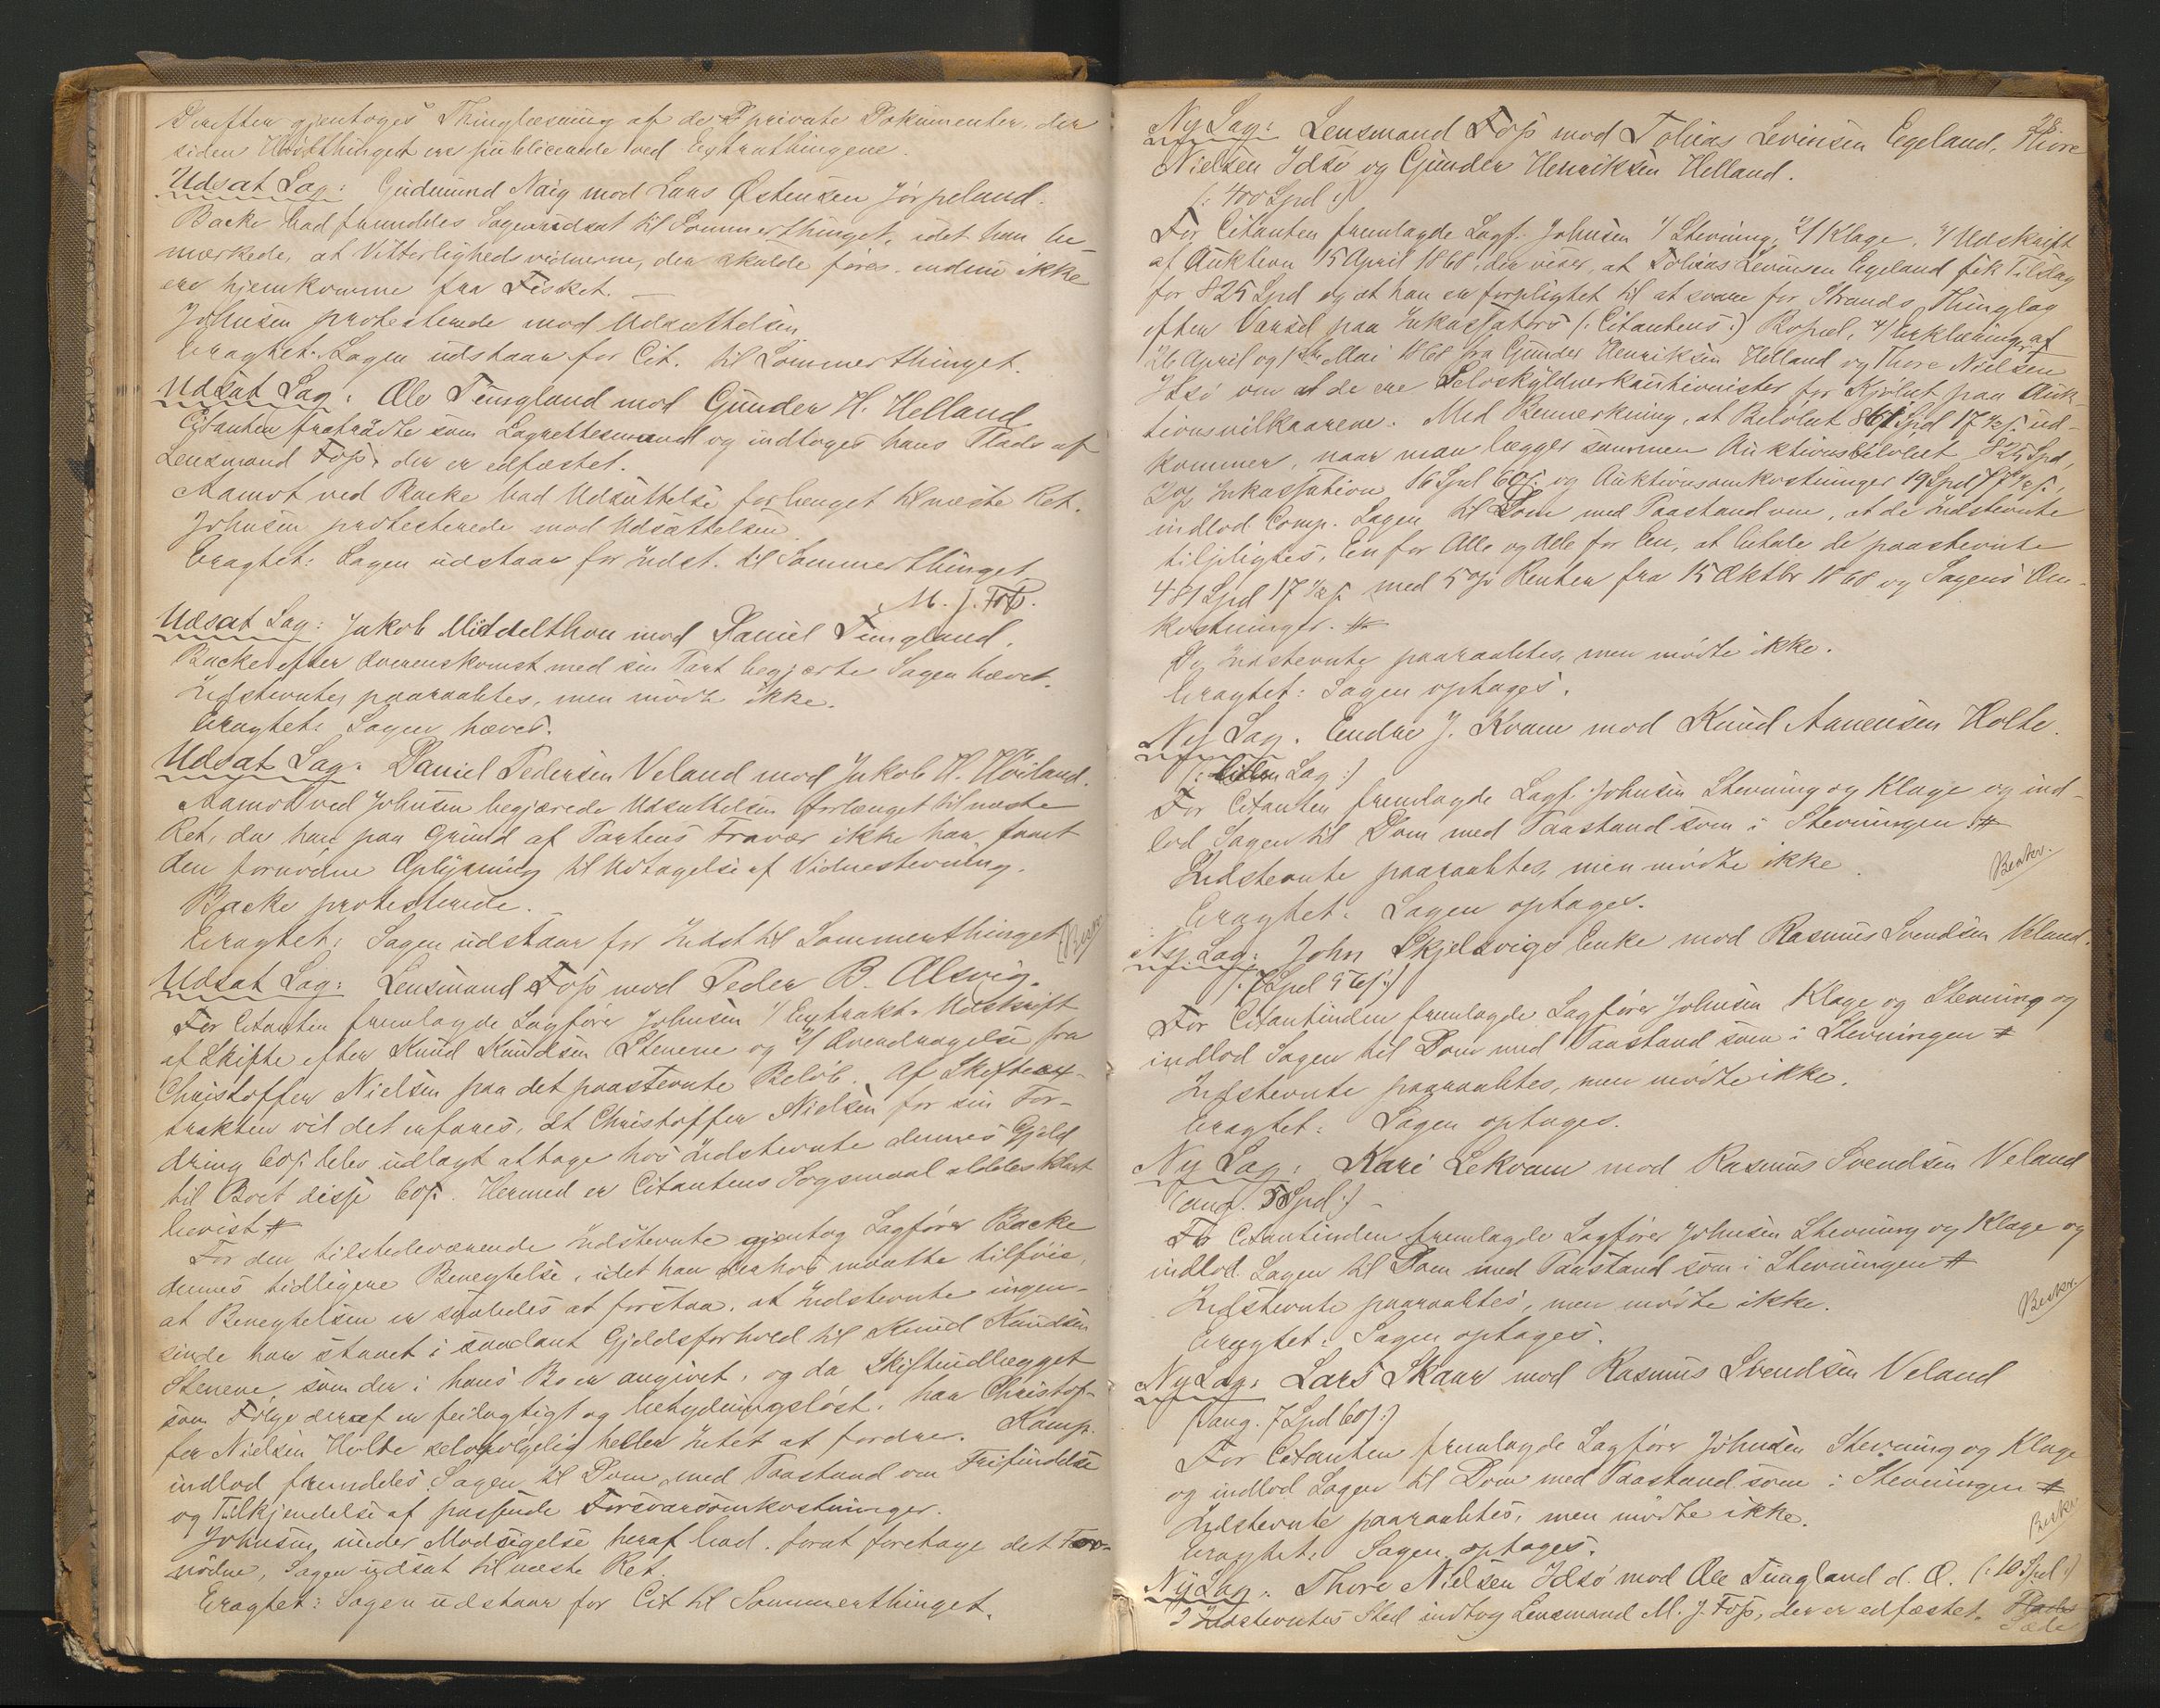 Derefter gjentoges Thinglæsning af de private Dokumenter, der
siden Høstthinget ere publicerede ved Extrathingene.
Udsat Sag: Gudmund Naig mod Lars Østensen Jørpeland.
Backe bad fremdeles Sagen udsat til Sommerthinget, idet han be-
mærkede, at Vitterlighedsvidnerne, der skulde føres, endnu ikke
ere hjemkomne fra Fisket.
Johnsen protesterede mod Udsættelsen
Eragtet: Sagen udstaar for Cit. til Sommerthinget.
Udsat Sag: Ole Tungland mod Gunder H. Helland
Citanten fratraadte som Lagrettesmand og indtoges hans Plads af
Lensmand Foss, der er edfæstet.
Aamot ved Backe bad Udsættelse forlænget til næste Ret.
Johnsen protesterede mod Udsættelsen.
Eragtet: Sagen udstaar for Indst. til Sommerthinget
M. J. Foss.
Udsat Sag: Jakob Middelthon mod Daniel Tungland.
Backe efter Overenskomst med sin Part begjærte Sagen hævet.
Indstevnte paaraabtes, men mødte ikke.
Eragtet: Sagen hæves.
Udsat Sag: Daniel Pedersen Veland mod Jakob H. Høiland.
Aamot ved Johnsen begjærede Udsættelsen forlænget til næste
Ret, da han paa Grund af Partens Fravær ikke har faaet
den fornødne Oplysning til Udtagelse af Vidnestevning.
Backe protesterede.
Eragtet: Sagen udstaar for Indst til Sommerthinget
Beskr.
Udsat Sag: Lensmand Foss mod Peder B. Alsvig.
For Citanten fremlagde Sagfører Johnsen 1/ Extrakt-Udskrift
af Skifte efter Knud Knudsen Stenene og 2/ Overdragelse fra
Christoffer Nielsen paa det paastevnte Beløb. Af Skifteex-
trakten vil det erfares, at Christoffer Nielsen for sin For-
dring 60 s. blev udlagt at tage hos Indstevnte dennes Gjeld
til Boet disse 60 s. Hermed er Citantens Søgsmaal aldeles klart
bevist #
For den tilstedeværende Indstevnte gjentog Sagfører Backe
dennes tidligere Benegtelse, idet han derhos maatte tilføie,
at Benegtelsen er saaledes at forstaa, at Indstevnte ingen-
sinde har staaet i saadant Gjeldsforhold til Knud Knudsen
Stenene, som der i hans Bo er angivet, og da Skifteudlægget
som Følge deraf er feilagtigt og betydningsløst, har Christof-
fer Nielsen Holte selvfølgelig heller Intet at fordre. Komp.
indlod fremdeles Sagen til Dom med Paastand om Frifindelse
og Tilkjendelse af passende Forsvarsomkostninger.
Johnsen, under Modsigelse heraf bad, forat foretage det For-
nødne, Sagen udsat til næste Ret.
Eragtet: Sagen udstaar for Cit til Sommerthinget.
28.
Ny Sag: Lensmand Foss mod Tobias Levinsen Egeland, Thore
Nielsen Idsø og Gunder Henriksen Helland.
(: 400 Spd :)
For Citanten fremlagde Sagf. Johnsen 1/ Stevning, 2/ Klage, 3/ Udskrift
af Auktion 15 April 1868, der viser, at Tobias Levinsen Egeland fik Tilslag
for 825 Spd og at han er forpligtet til at svare for Strands Thinglag
efter Varsel paa Inkassators (: Citantens :) Bopæl, 4/ Erklæringer af
26 April og 1ste Mai 1868 fra Gunder Henriksen Helland og Thore Nielsen
Idsø om at de ere Selvskyldnerkautionister for Kjøbet paa Auk-
tionsvilkaarene. Med Bemerkning, at Beløbet 861 Spd 17 ½ s. ud-
kommer, naar man lægger sammen Auktionsbeløbet 825 Spd,
2 % Inkassation 16 Spd 60 s. og Auktionsomkostninger 19 Spd 77 ½ s.,
indlod Comp. Sagen til Dom med Paastand om, at de Indstevnte
tilpligtes, Een for Alle og Alle for Een, at betale de paastevnte
481 Spd 17 ½ s. med 5 % Renter fra 15 Oktbr 1868 og Sagens Om-
kostninger. #
De Indstevnte paaraabtes, men mødte ikke.
Eragtet: Sagen optages.
Ny Sag. Endre J. Kvam mod Knud Aanensen Holte.
(: liden Sag :)
For Citanten fremlagde Sagf. Johnsen Stevning og Klage og ind-
lod Sagen til Dom med Paastand som i Stevningen #
Indstevnte paaraabtes, men mødte ikke.
Beskr.
Eragtet: Sagen optages.
Ny Sag: John Skjelsvigs Enke mod Rasmus Svendsen Veland.
For Citantinden fremlagde Sagfører Johnsen Klage og Stevning og
indlod Sagen til Dom med Paastand som i Stevningen #
Indstevnte paaraabtes, men mødte ikke.
Eragtet: Sagen optages.
Ny Sag: Kari Lekvam mod Rasmus Svendsen Veland
(ang. Spd :)
For Citantinden fremlagde Sagfører Johnsen Stevning og Klage og
indlod Sagen til Dom med Paastand som i Stevningen #
Indstevnte paaraabtes, men mødte ikke.
Beskr.
Eragtet: Sagen optages.
Ny Sag: Lars Skaar mod Rasmus Svendsen Veland
(ang. 7 Spd 60 s :)
For Citanten fremlagde Sagfører Johnsen Stevning og Klage
og indlod Sagen til Dom med Paastand som i Stevningen #
Indstevnte paaraabtes, men mødte ikke.
Beskr.
Eragtet: Sagen optages.
Ny Sag: Thore Nielsen Idsø mod Ole Tungland d. O. (: 10 Spd :)
I Indstevntes Sted indtog Lensmand M. J. Foss, der er edfæstet, Plads
Sæde